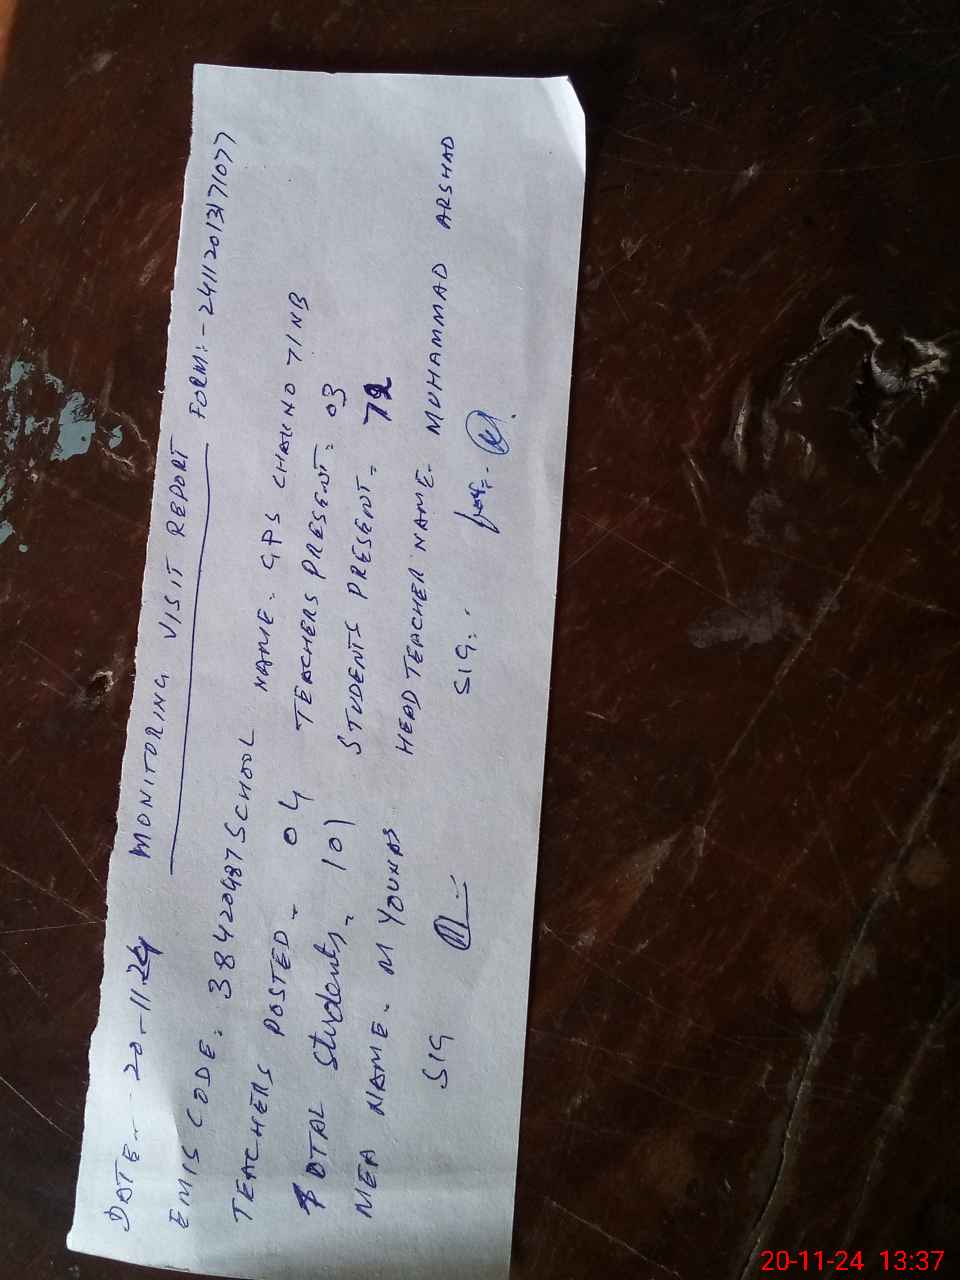 DATE - 20-11-24 MONITORING VISIT REPORT FORM:- 2411201317 1077
EMIS CODE: 38420487 SCHOOL NAME: GPS CHAK NO 71NB
TEACHERS POSTED - 04 TEACHERS PRESENT: 03
TOTAL Students = 101 STUDENTS PRESENT = 72
MEA NAME - M YOUNAS HEAD TEACHER NAME. MUHAMMAD ARSHAD
SIG SIG:
20-11-24 13:37